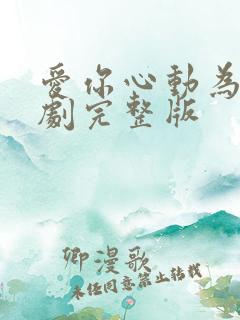 愛你心動為
劇完整版
卿漫歌
未经同意禁止转载